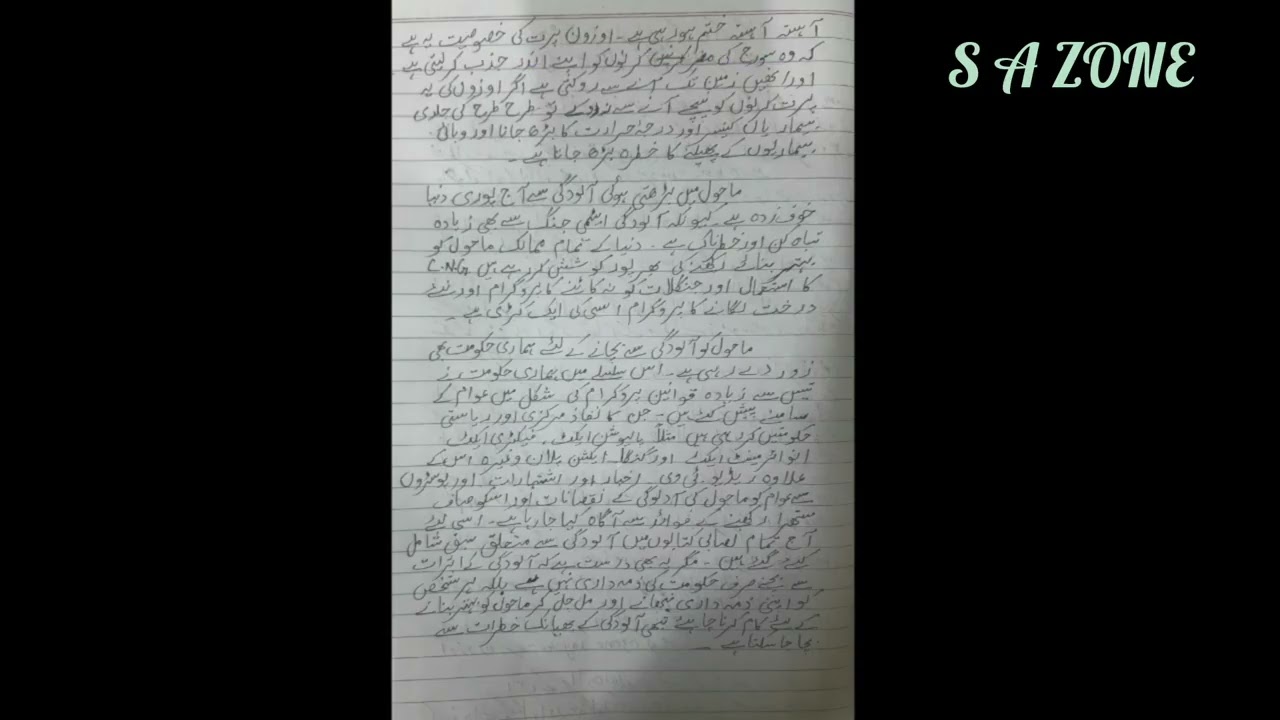 آہستہ آہستہ ختم ہو رہی ہے۔ اوزون پرت کی خصوصیت یہ ہے
کہ وہ سورج کی مضر کرنوں کو اپنے اندر جذب کر لیتی ہے
اور انھیں زمین تک آنے سے روکتی ہے اگر اوزون کی یہ
پرت کرنوں کو نیچے آنے سے نہ روکے تو طرح طرح کی جلدی
بیماریاں کینسر اور درجۂ حرارت کا بڑھ جانا اور وبائی
بیماریوں کے پھیلنے کا خطرہ بڑھ جاتا ہے۔
ماحول میں بڑھتی ہوئی آلودگی سے آج پوری دنیا
خوف زدہ ہے کیونکہ آلودگی ایٹمی جنگ سے بھی زیادہ
تباہ کن اور خطرناک ہے۔ دنیا کے تمام ممالک ماحول کو
بہتر بنائے رکھنے کی بھرپور کوشش کر رہے ہیں C.N.G
کا استعمال اور جنگلات کو نہ کاٹنے کا پروگرام اور نئے
درخت لگانے کا پروگرام اسی کی ایک کڑی ہے۔
ماحول کو آلودگی سے بچانے کے لئے ہماری حکومت بھی
زور دے رہی ہے۔ اس سلسلے میں ہماری حکومت نے
تیس سے زیادہ قوانین پروگرام کی شکل میں عوام کے
سامنے پیش کئے ہیں۔ جن کا نفاذ مرکزی اور ریاستی
حکومتیں کر رہی ہیں مثلاً پالیوشن ایکٹ، فیکٹری ایکٹ
انوائرمینٹ ایکٹ اور گنگا ایکشن پلان وغیرہ اس کے
علاوہ ریڈیو ٹی وی اخبار اور اشتہارات اور پوسٹروں
سے عوام کو ماحول کی آلودگی کے نقصانات اور اسکو صاف
ستھرا رکھنے کے فوائد سے آگاہ کیا جا رہا ہے۔ اسی لئے
آج تمام نصابی کتابوں میں آلودگی سے متعلق سبق شامل
کئے گئے ہیں۔ مگر یہ بھی درست ہے کہ آلودگی کے اثرات
سے بچنے صرف حکومت کی ذمہ داری نہیں ہے بلکہ ہر شخص
کو اپنی ذمہ داری نبھانے اور مل جل کر ماحول کو بہتر بنانے
کے لئے کام کرنا چاہئے تبھی آلودگی کے بھیانک خطرات سے
بچا جا سکتا ہے۔
S A ZONE